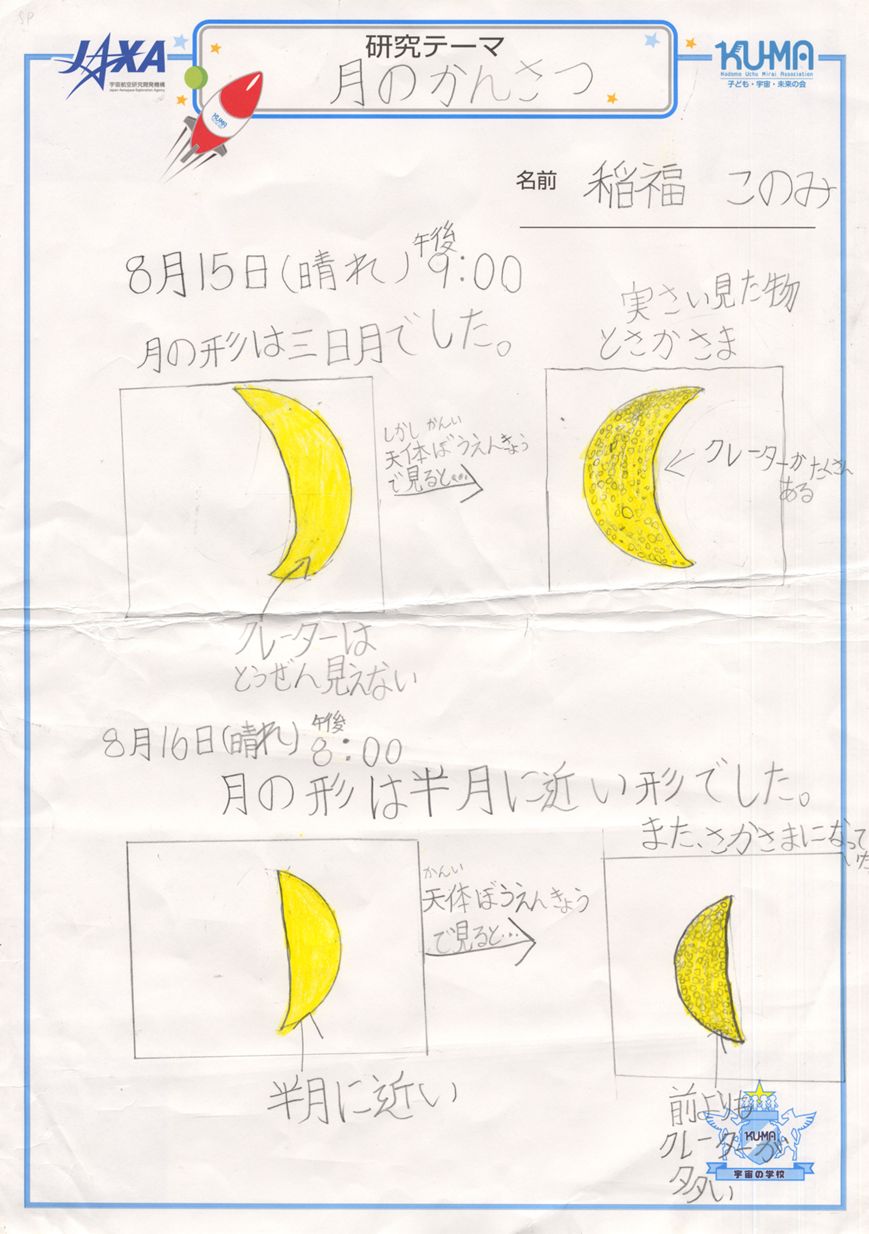 SP
JAXA
宇宙航空研究開発機構
Japan Aerospace Exploration Agency
研究テーマ
月のかんさつ
KU-MA
Kodomo Uchu Mirai Association
子ども・宇宙・未来の会
KU-MA
名前 稲福 このみ
8月15日(晴れ)午後9:00
月の形は三日月でした。
実さい見た物
とさかさま
しかし かんい
天体ぼうえんきょう
で見ると…
クレーターがたくさん
ある
クレーターは
とうぜん見えない
8月16日(晴れ)午後8:00
月の形は半月に近い形でした。
また、さかさまになって
いた
かんい
天体ぼうえんきょう
で見ると…
半月に近い
前よりも
クレーターが
多い
KU-MA
宇宙の学校